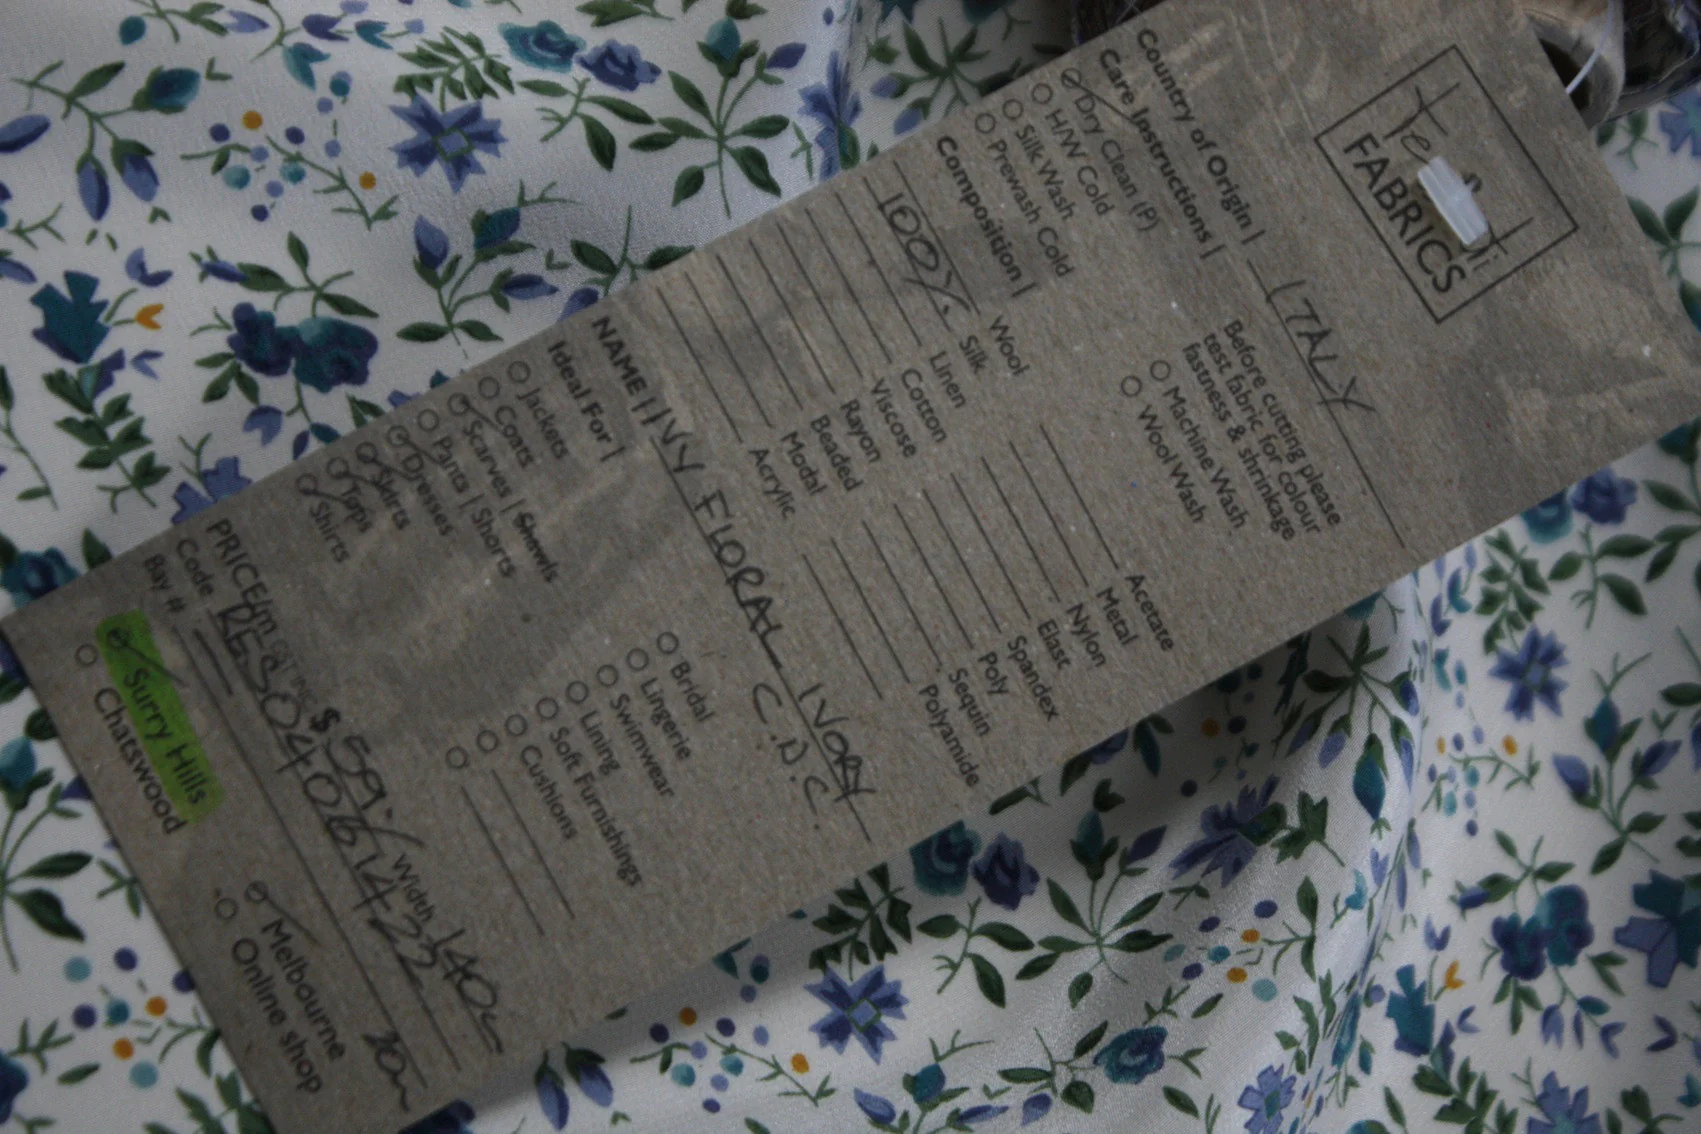 FABRICS
Country of Origin | ITALY
Care Instructions |
Dry Clean (P)
H/W Cold
Silk Wash
Prewash Cold
Before cutting please
test fabric for colour
fastness & shrinkage
Machine Wash
Wool Wash
Composition |
Wool
100% Silk
Linen
Cotton
Viscose
Rayon
Beaded
Modal
Acrylic
Acetate
Metal
Nylon
Elast
Spandex
Poly
Sequin
Polyamide
NAME | IVY FLORAL IVORY
C.D.C.
Ideal For |
Jackets
Coats
Scarves | Shawls
Pants | Shorts
Dresses
Skirts
Tops
Shirts
Bridal
Lingerie
Swimwear
Lining
Soft Furnishings
Cushions
PRICE/m $59.- Width 140c
Code
Bay #
Surry Hills
Chatswood
Melbourne
Online shop